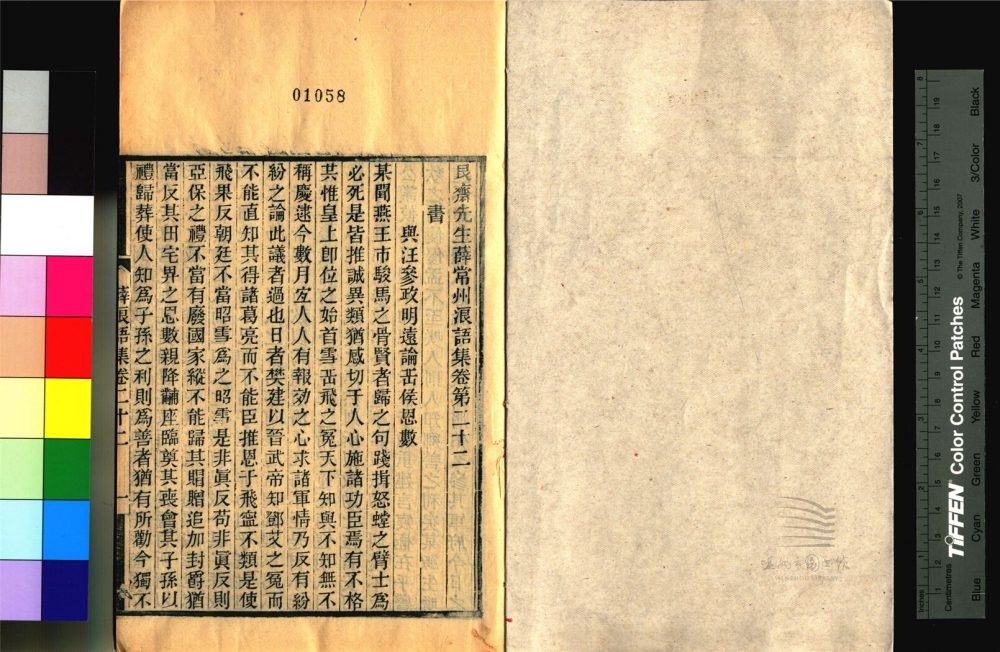 01058
艮齋先生薛常州浪語集卷第二十二
書
與汪參政明遠論岳侯恩數
某聞燕王市駿馬之骨賢者歸之句踐揖怒螳之臂士爲
必死是皆推誠異類猶感切于人心施諸功臣焉有不格
共惟皇上卽位之始首雪岳飛之冤天下知與不知無不
稱慶逮今數月宐人人有報効之心求諸軍情乃反有紛
紛之論此議者過也日者樊建以晉武帝知鄧艾之冤而
不能直知其得諸葛亮而不能臣推恩于飛寧不類是使
飛果反朝廷不當昭雪爲之昭雪是非眞反苟非眞反則
亞保之禮不當有廢國家縱不能歸其賵贈追加封爵猶
當反其田宅畀之恩數親降繭座臨奠其喪會其子孫以
禮歸葬使人知爲子孫之利則爲善者猶有所勸今獨不
薛浪語集卷二十二
一
Inches
Centimetres
TIFFEN Color Control Patches
© The Tiffen Company, 2007
Blue
Cyan
Green
Yellow
Red
Magenta
White
3/Color
Black